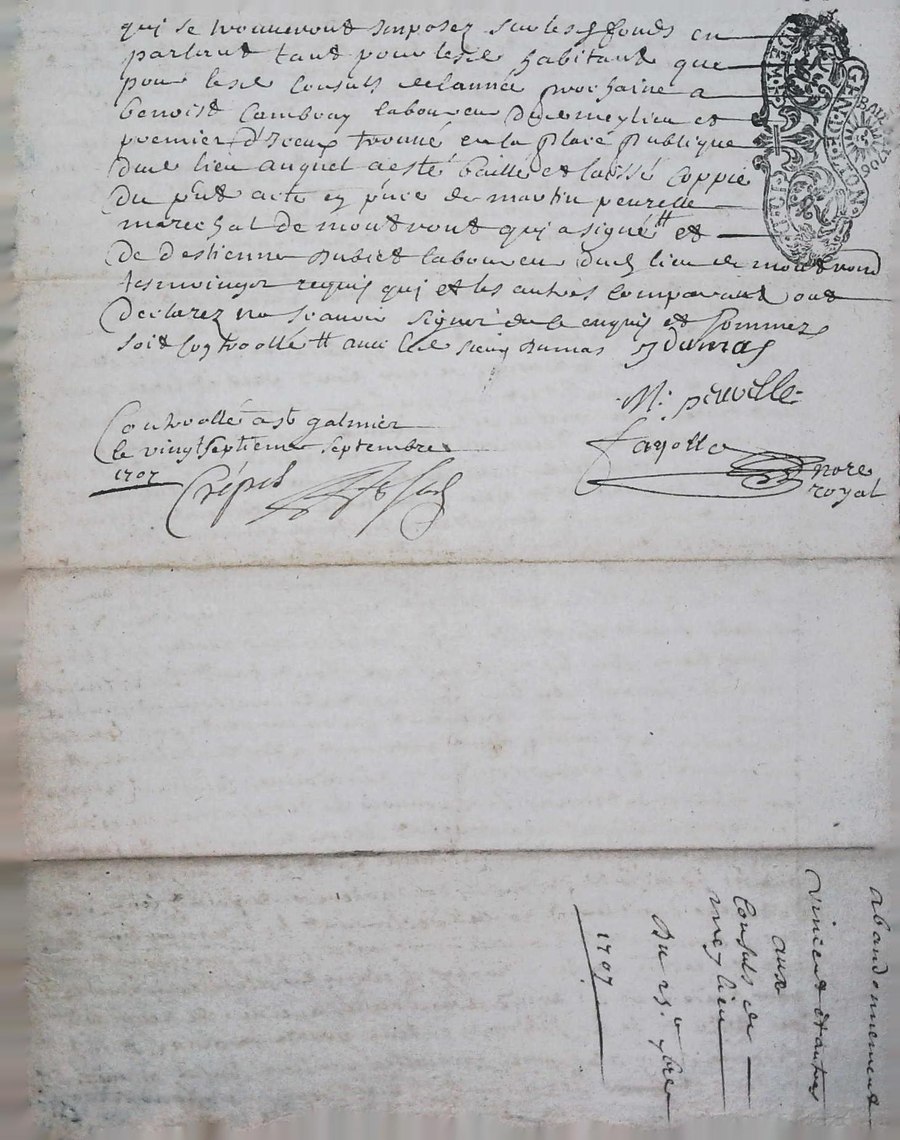 qui se trouveront imposez sur lesd fonds en
parlant tant pour lesd habitant que
pour lesd Consuls de lannée prochaine a
benoist Combray laboureur dud meylieu et
premier d'Iceux trouué en la place publique
dud lieu auquel a esté baillé et laissé Coppie
du pnt acte en pnce de martin peurelle
marechal de montront qui a signé et
de destienne dubiet laboureur dud lieu de montrond
tesmoingz requis qui et les autres comparant ont
declarez ne scauoir signer de ce enquis et sommez
soit controollé aud led sieur dumas J Dumas
M: peurelle
Controllé a st galmier
le vingtseptieme septembre
1707
Crépet
fayolle
nore
royal
GEN DE LION
abandonnement
vincent et autres
aux
Consuls de
meylieu
Du 25e 7bre
1707